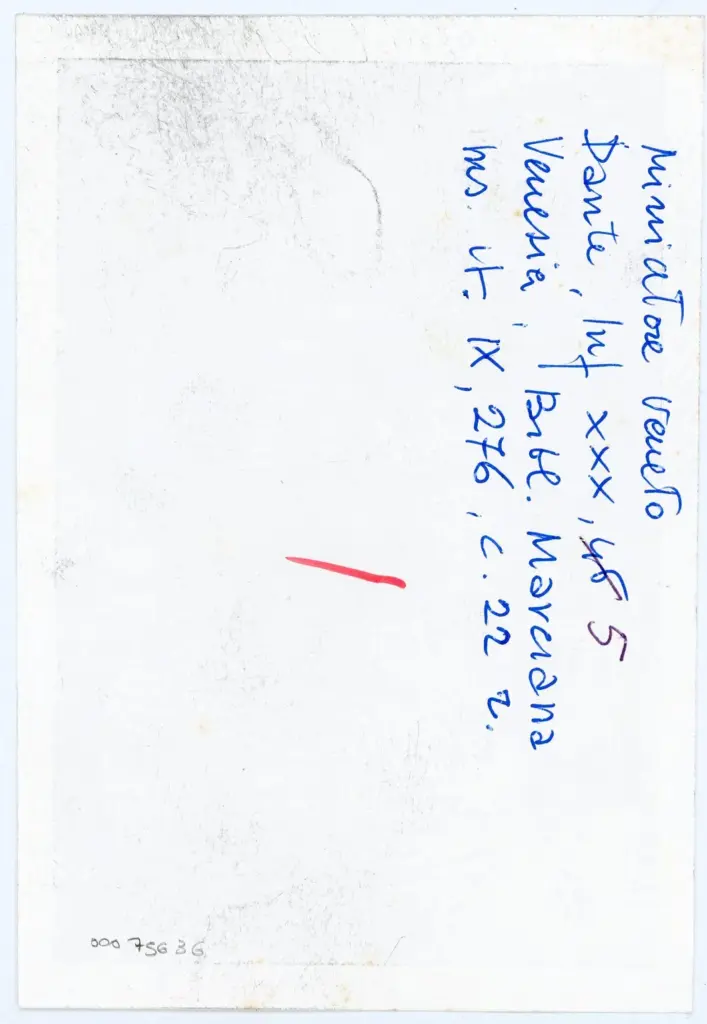 Miniatore Veneto
Dante, Inf XXX, 5
Venezia, Bibl. Marciana
ms. it. IX, 276, c. 22 r.
00075636